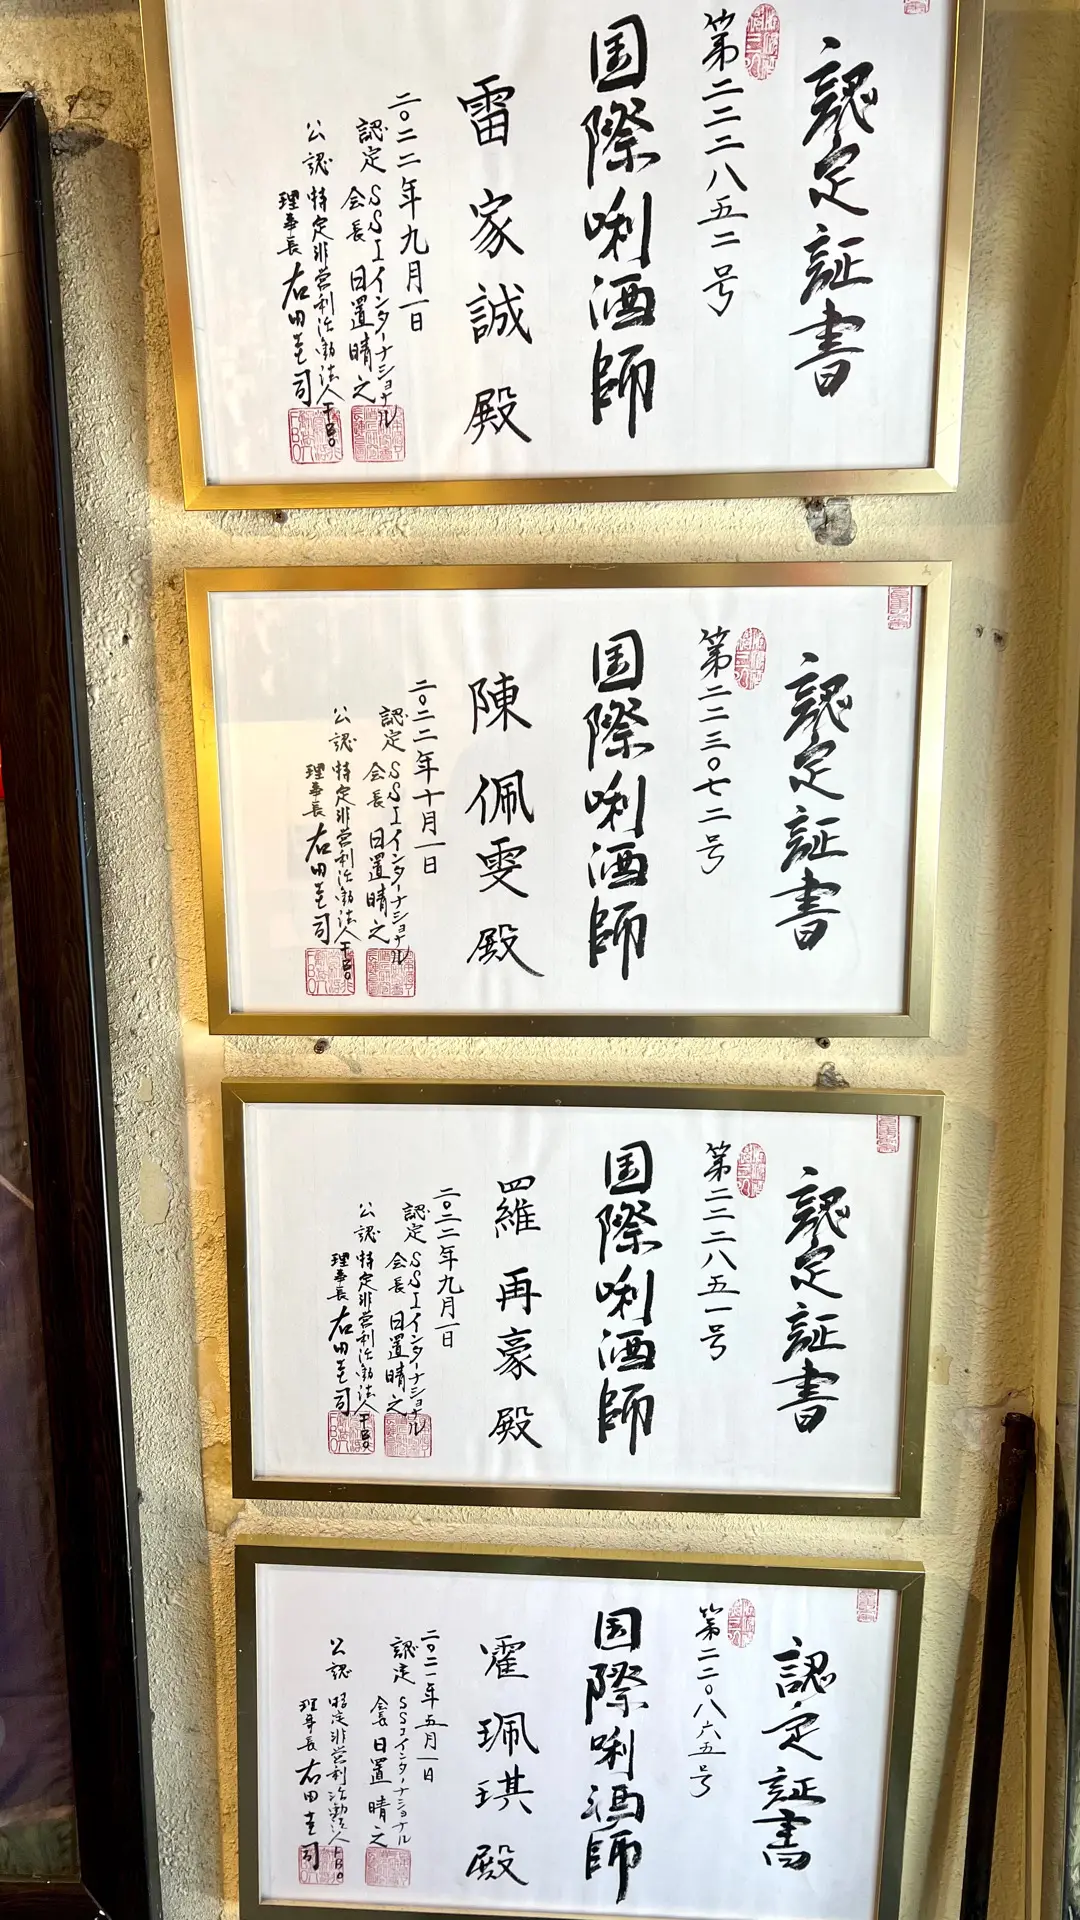 認定証書
第二二二八五二号
国際唎酒師
雷家誠殿
二〇二二年九月一日
認定 SSIインターナショナル
会長 日置晴之
公認 特定非営利活動法人FBO
理事長 右田圭司
認定証書
第二二三〇七二号
国際唎酒師
陳佩雯殿
二〇二二年十月一日
認定 SSIインターナショナル
会長 日置晴之
公認 特定非営利活動法人FBO
理事長 右田圭司
認定証書
第二二二八五一号
国際唎酒師
羅再豪殿
二〇二二年九月一日
認定 SSIインターナショナル
会長 日置晴之
公認 特定非営利活動法人FBO
理事長 右田圭司
認定証書
第二二〇八六五号
国際唎酒師
霍珮琪殿
二〇二一年五月一日
認定 SSIインターナショナル
会長 日置晴之
公認 特定非営利活動法人FBO
理事長 右田圭司